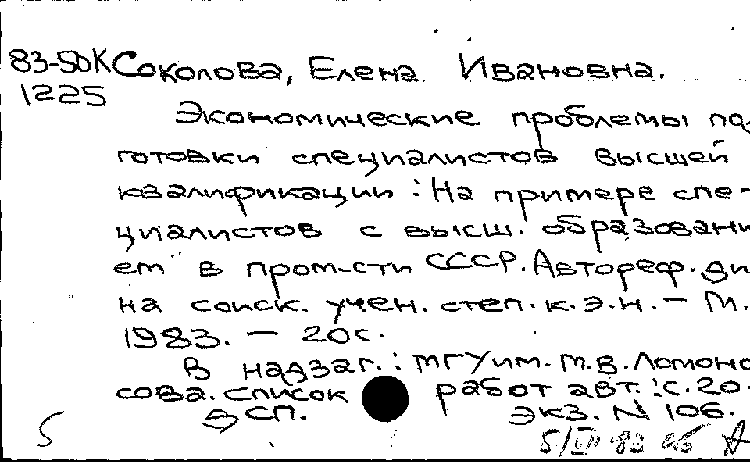 83-50К Соколова, Елена Ивановна.
1225
Экономические проблемы под
готовки специалистов высшей
квалификации : На примере спе-
циалистов с высш. образовани
ем в пром-сти СССР. Автореф. ди
на соиск. учен. степ. к.э.н. — М.
1983. — 20с.
В надзаг.: МГУ им. М.В. Ломоно
сова. Список работ авт.: с. 20.
ДСП. Экз. N 106.
5